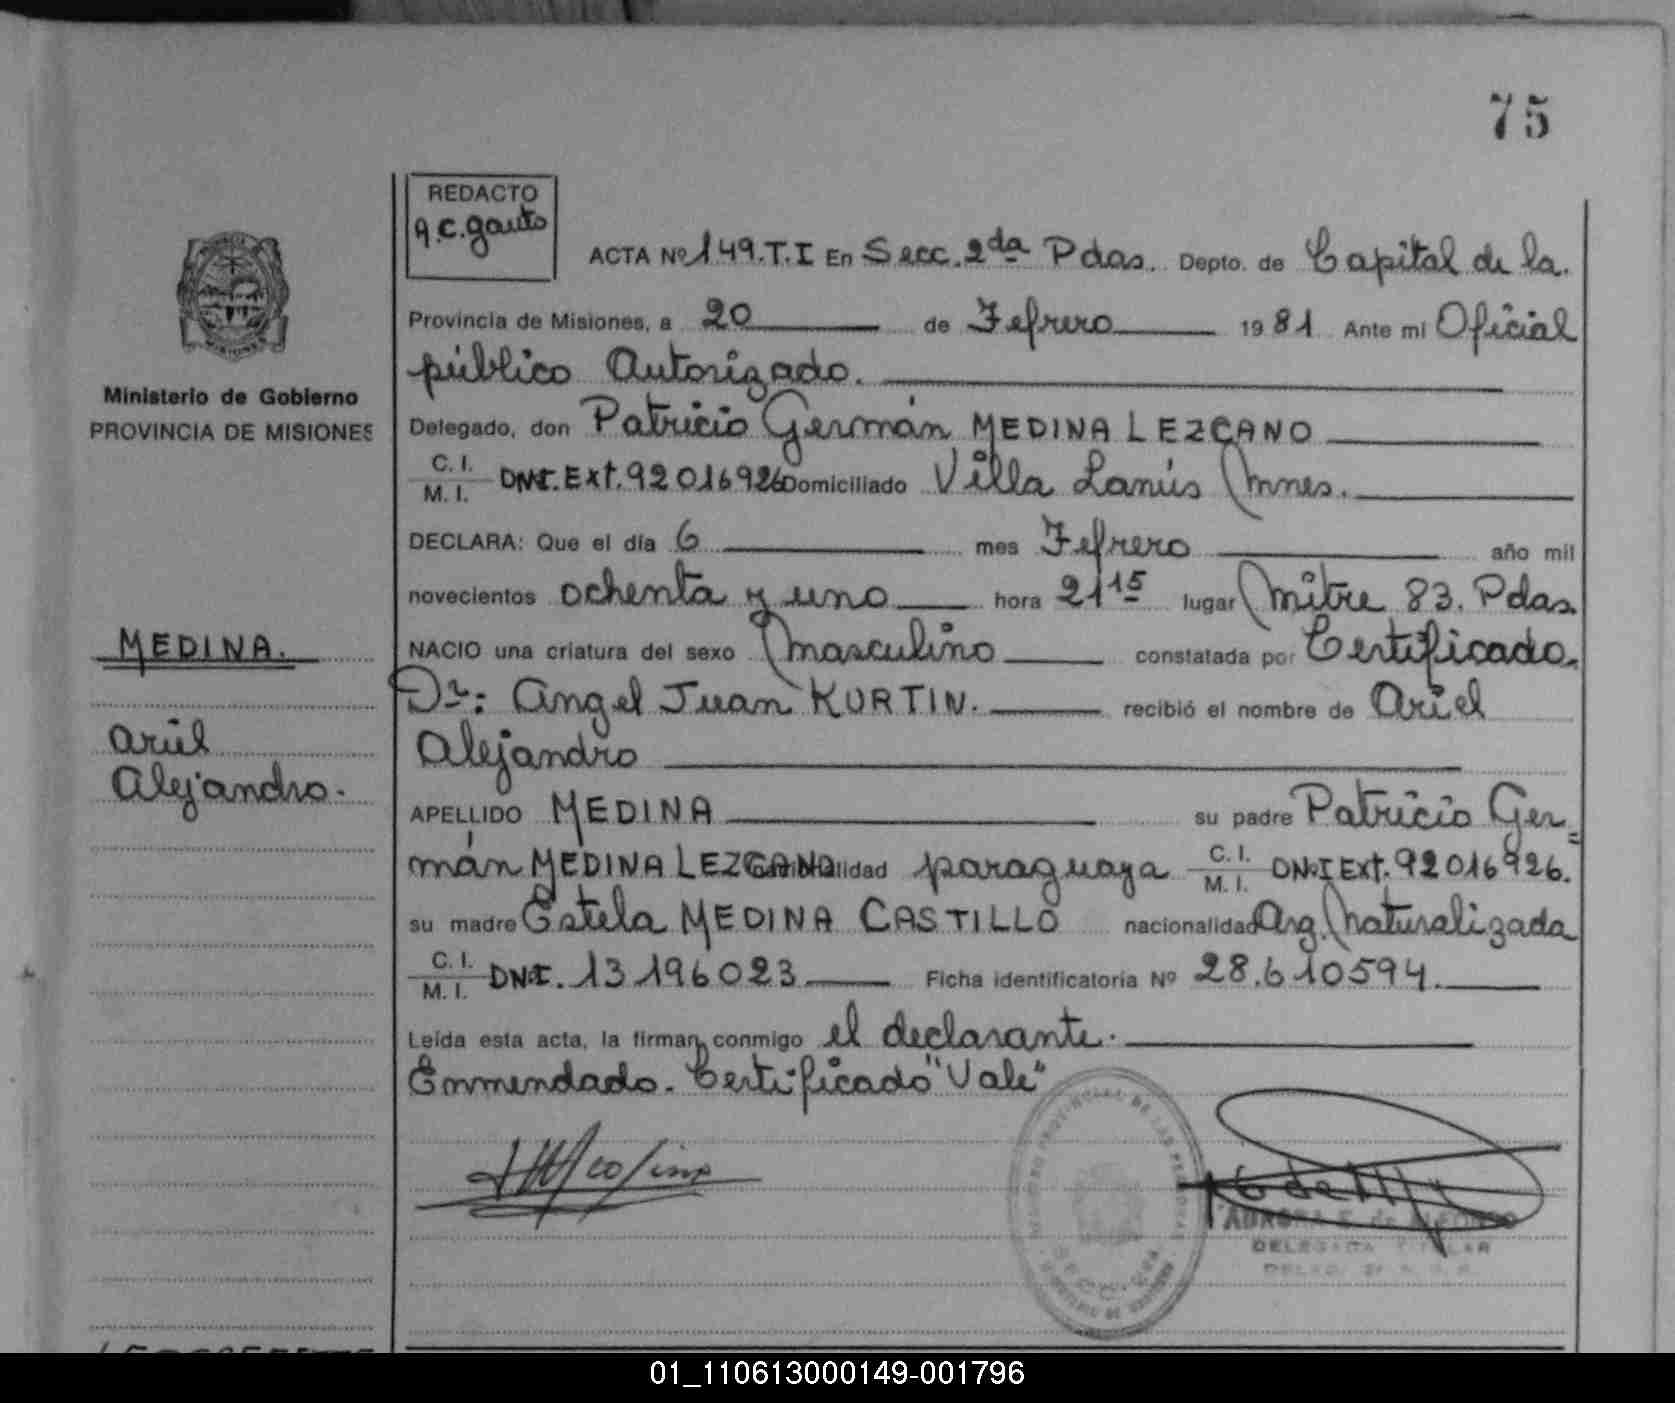 75
REDACTO
A.C. Gauto
ACTA Nº 149.T.I En Secc. 2da Pdas. Depto. de Capital de la.
Provincia de Misiones, a 20 de Febrero 1981 Ante mi Oficial
público Autorizado.
MISIONES
Ministerio de Gobierno
PROVINCIA DE MISIONES
Delegado, don Patricio Germán MEDINA LEZCANO
C. I.
M. I. DNI. Ext. 92016926 Domiciliado Villa Lanús Mnes.
DECLARA: Que el día 6 mes Febrero año mil
novecientos ochenta y uno hora 21 15 lugar Mitre 83. Pdas.
MEDINA.
Ariel
Alejandro.
NACIO una criatura del sexo masculino constatada por Certificado.
Dr: Angel Juan KURTIN. recibió el nombre de Ariel
Alejandro
APELLIDO MEDINA su padre Patricio Ger=
mán MEDINA LEZCANO nacionalidad paraguaya C. I.
M. I. DNI Ext. 92016926.
su madre Estela MEDINA CASTILLO nacionalidad Arg. Naturalizada
C. I.
M. I. DNI. 13196023 Ficha identificatoria Nº 28.610594.
Leída esta acta, la firman conmigo el declarante.
Enmendado. Certificado "Vale"
AURORA E. de ALFONSO
DELEGADA TITULAR
01_110613000149-001796